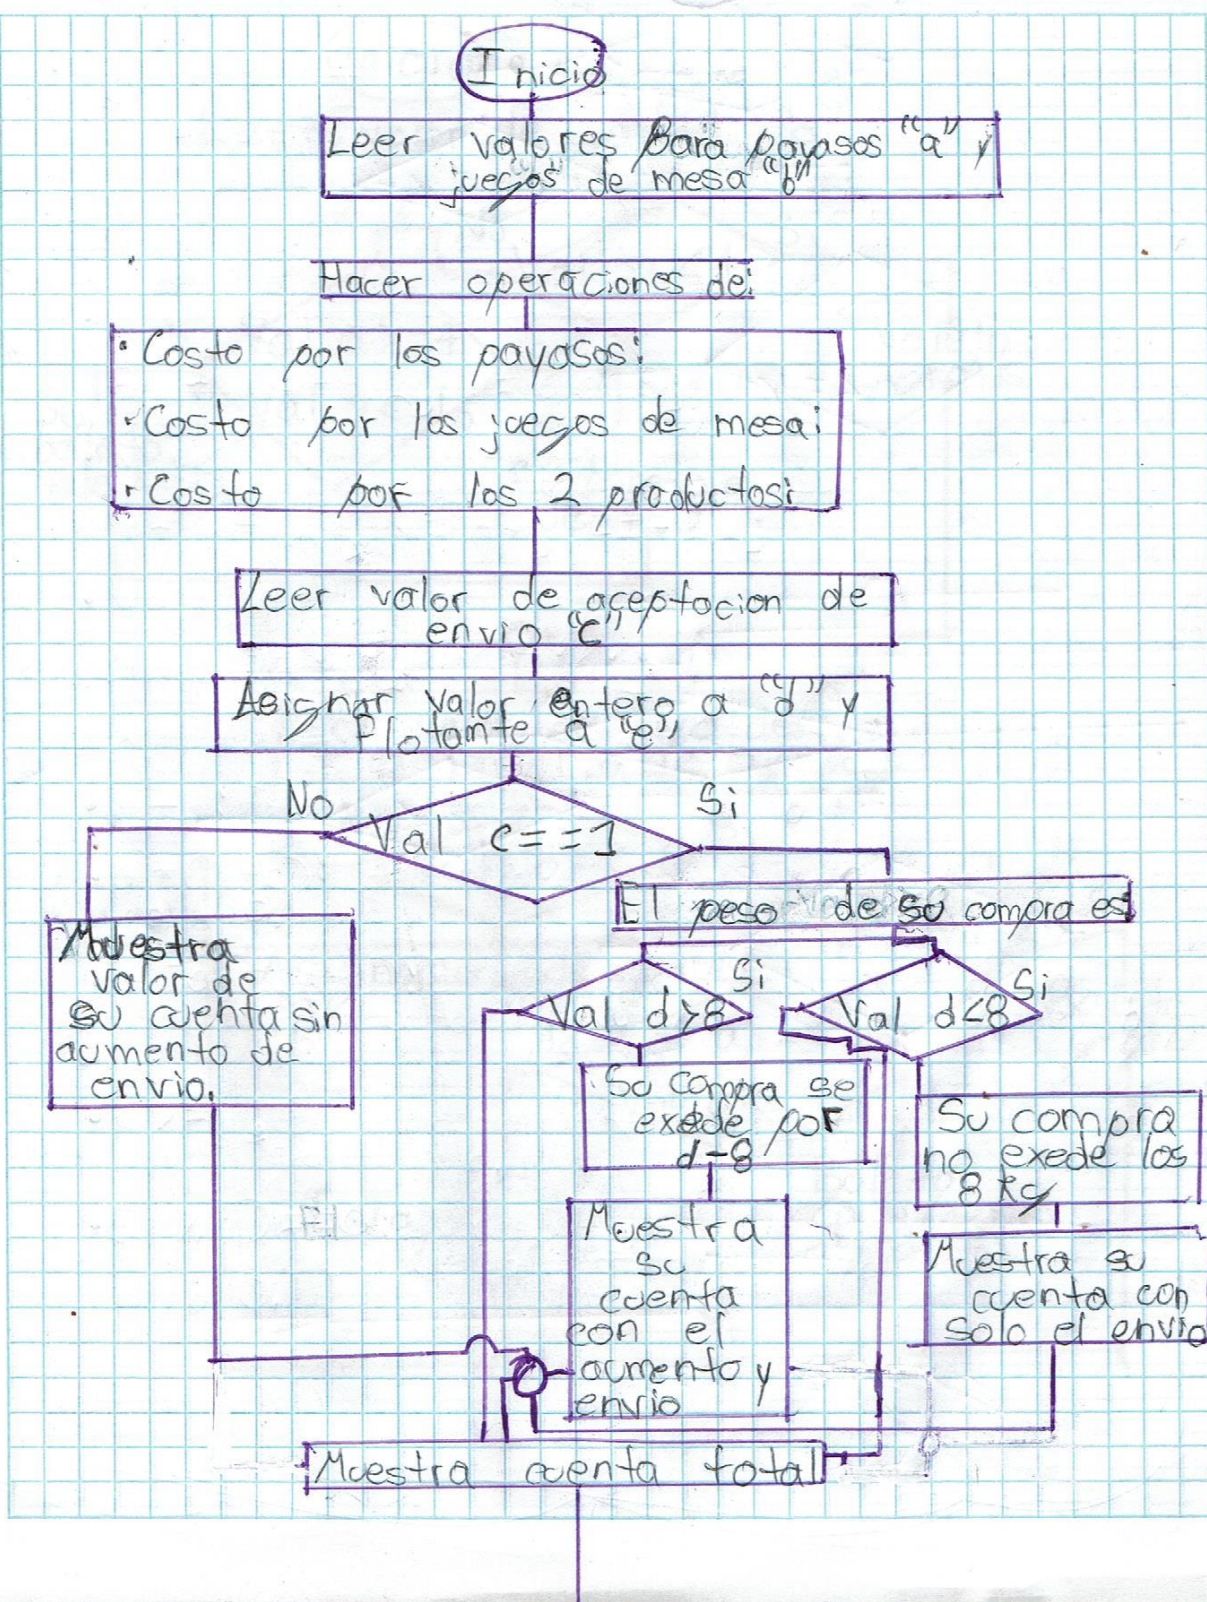 Inicio
Leer valores para payasos "a" y
juegos de mesa "b"
Hacer operaciones de:
· Costo por los payasos:
· Costo por los juegos de mesa:
· Costo por los 2 productos:
Leer valor de aceptacion de
envio "c"
Asignar valor entero a "d" y
flotante a "e"
No
Si
Val c==1
El peso de su compra es
Muestra
valor de
su cuenta sin
aumento de
envio.
Si
Val d>8
Si
Val d<8
Su compra se
exede por
d-8
Su compra
no exede los
8 Kg
Muestra
su
cuenta
con el
aumento y
envio
Muestra su
cuenta con
solo el envio
Muestra cuenta total